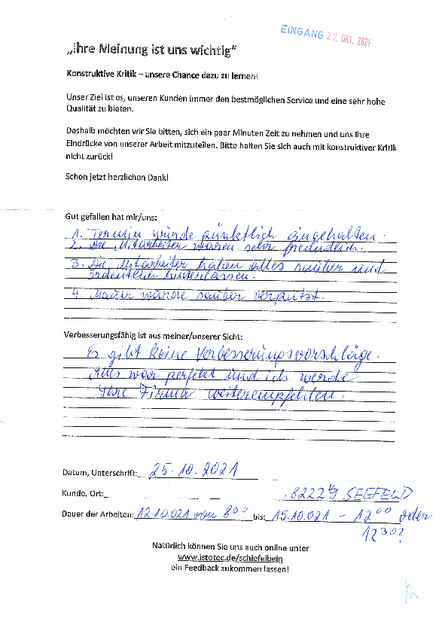 EINGANG 27. OKT. 2021
„Ihre Meinung ist uns wichtig“
Konstruktive Kritik – unsere Chance dazu zu lernen!
Unser Ziel ist es, unseren Kunden immer den bestmöglichen Service und eine sehr hohe
Qualität zu bieten.
Deshalb möchten wir Sie bitten, sich ein paar Minuten Zeit zu nehmen und uns Ihre
Eindrücke von unserer Arbeit mitzuteilen. Bitte halten Sie sich auch mit konstruktiver Kritik
nicht zurück!
Schon jetzt herzlichen Dank!
Gut gefallen hat mir/uns:
1. Termin wurde pünktlich eingehalten.
2. Die Mitarbeiter waren sehr freundlich.
3. Die Mitarbeiter haben alles sauber und
ordentlich hinterlassen.
4. Mauer wurde sauber verputzt.
Verbesserungsfähig ist aus meiner/unserer Sicht:
Es gibt keine Verbesserungsvorschläge.
Alles war perfekt und ich werde
Ihre Firma weiterempfehlen.
Datum, Unterschrift: 25.10.2021
Kunde, Ort: 82229 SEEFELD
Dauer der Arbeiten: 12.10.021 von 8⁰⁰ bis: 15.10.021 – 12⁰⁰ oder
12³⁰?
Natürlich können Sie uns auch online unter
www.isotec.de/schiefelbein
ein Feedback zukommen lassen!